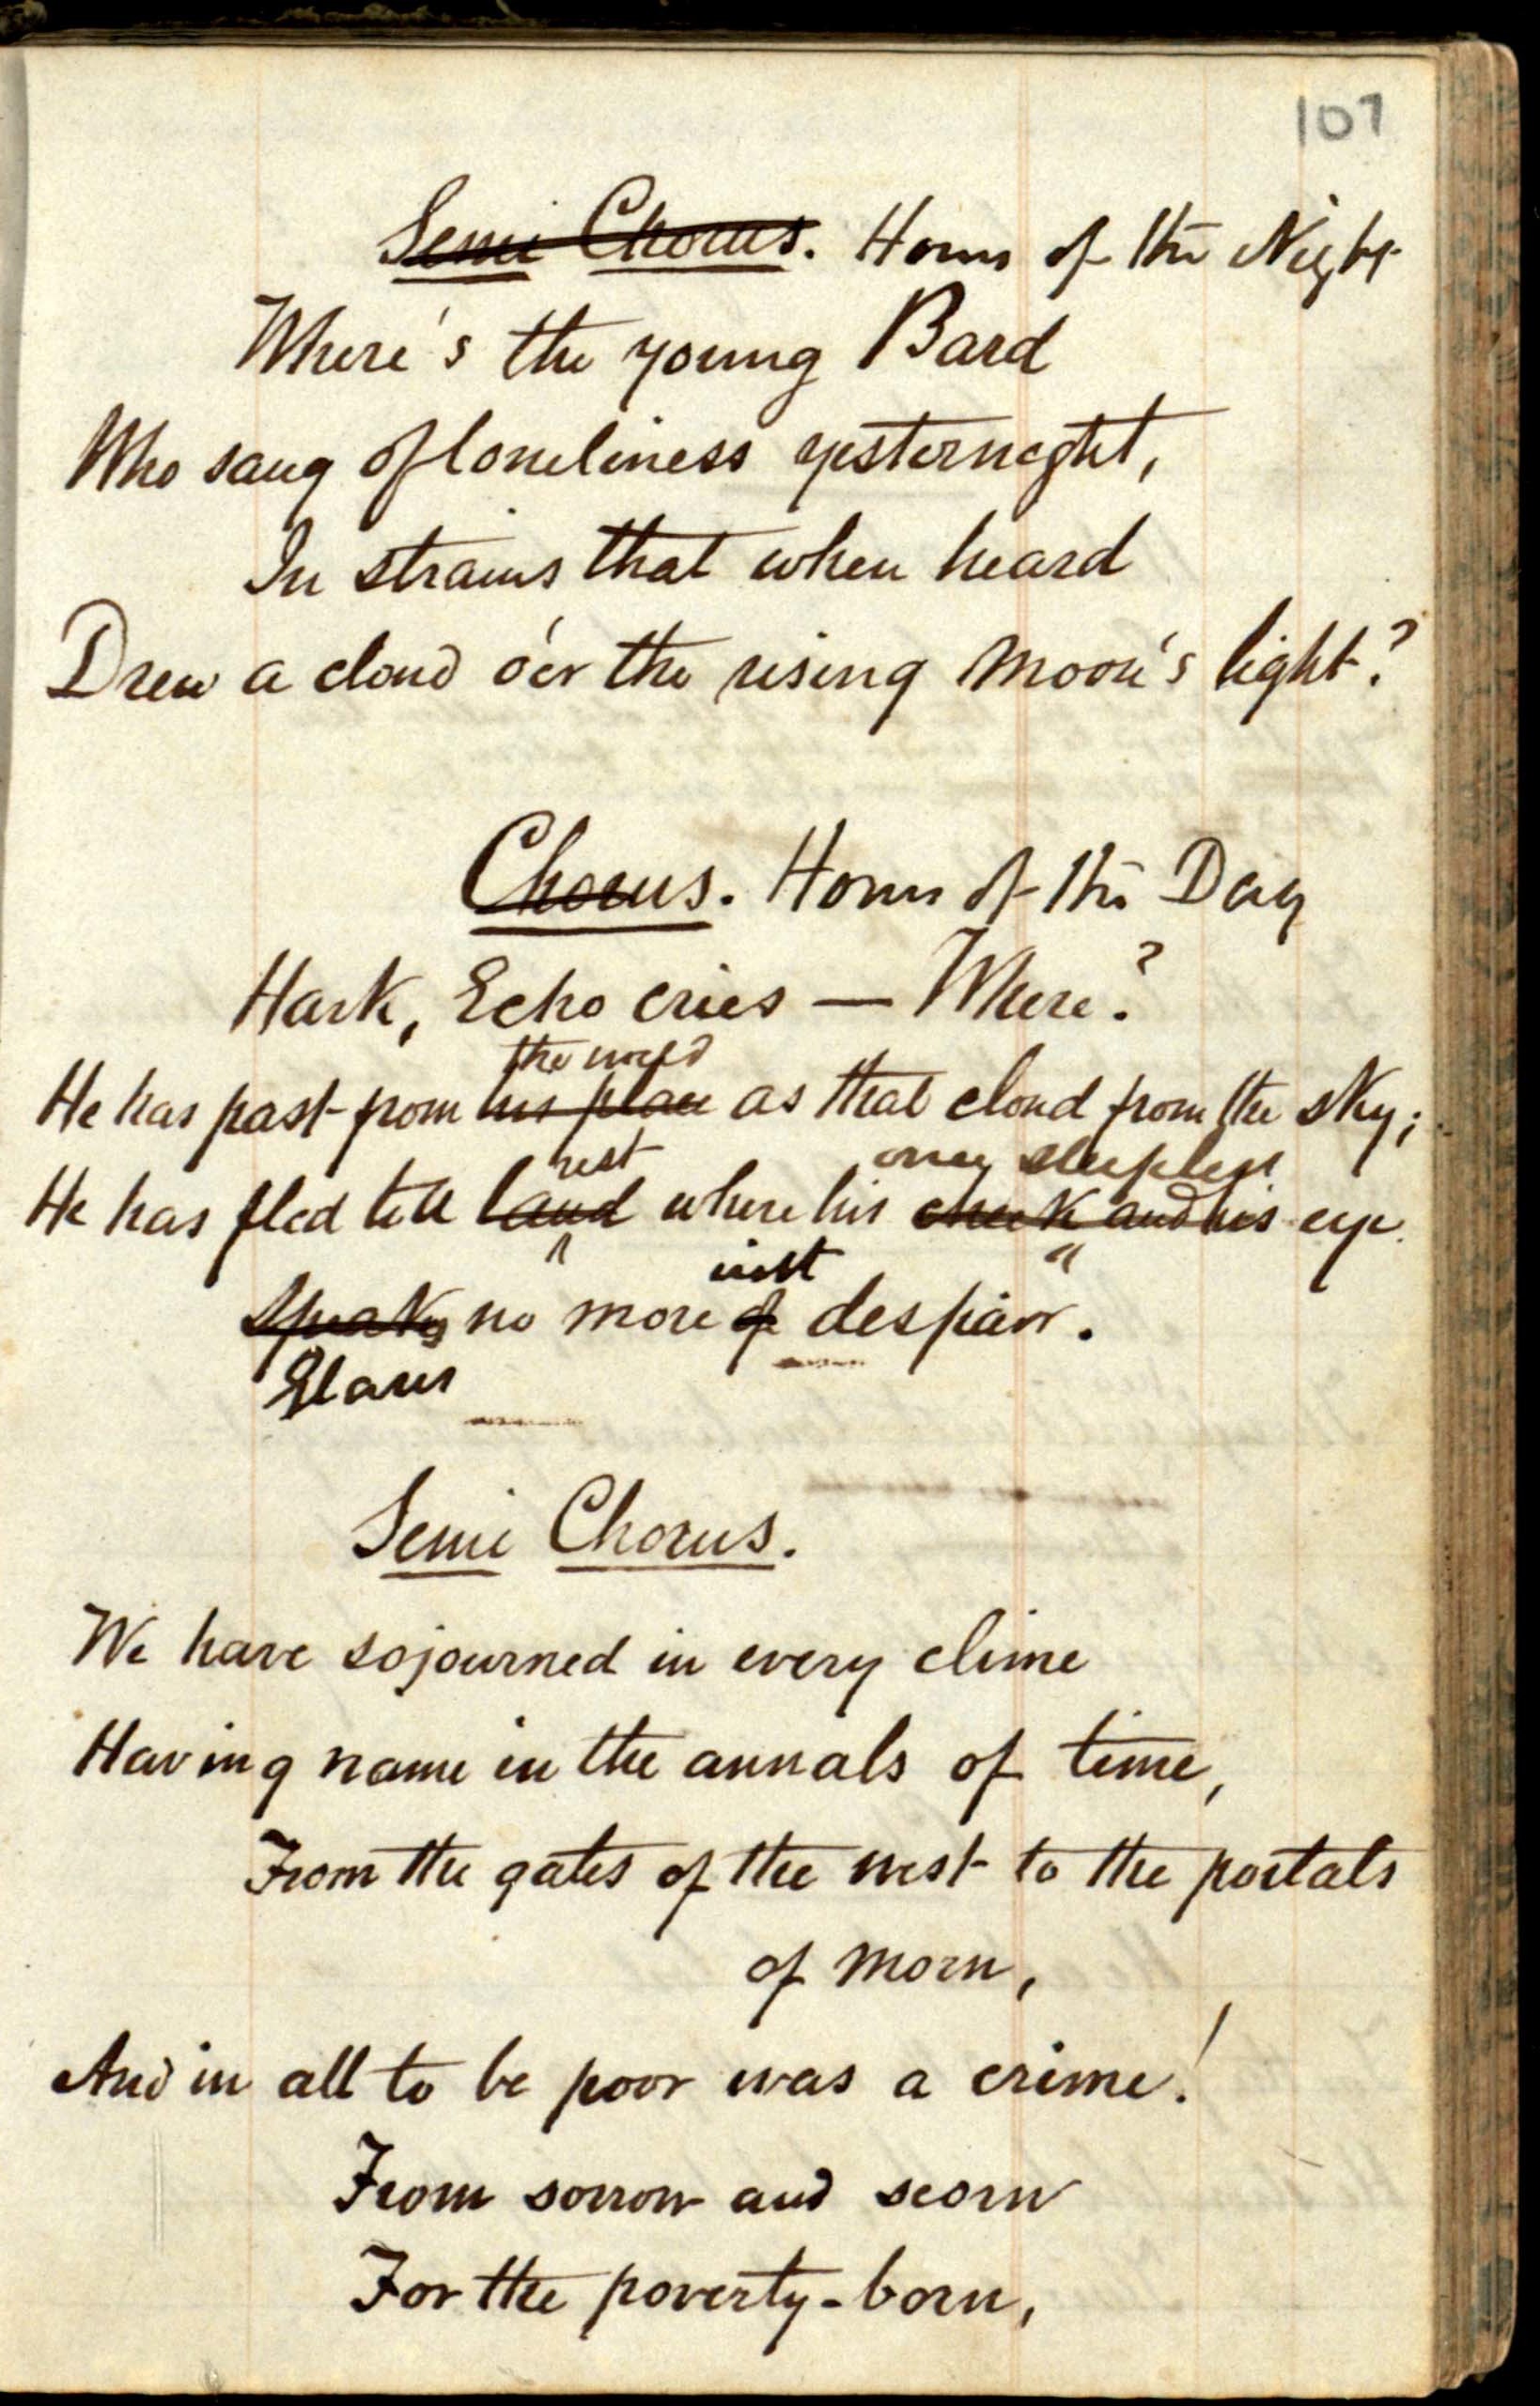 107
Semi Chorus. Hours of the Night
Where's the young Bard
Who sang of loneliness yesternight,
In strains that when heard
Drew a cloud o'er the rising moon's light?
Chorus. Hours of the Day
Hark, Echo cries — Where?
the world
He has past from his place as that cloud from the sky;
rest sleepless
He has fled to a land where his cheek and his eye
with
Speaks no more of despair.
Glares
Semi Chorus.
We have sojourned in every clime
Having name in the annals of time,
From the gates of the west to the portals
of morn,
And in all to be poor was a crime!
From sorrow and scorn
For the poverty-born,